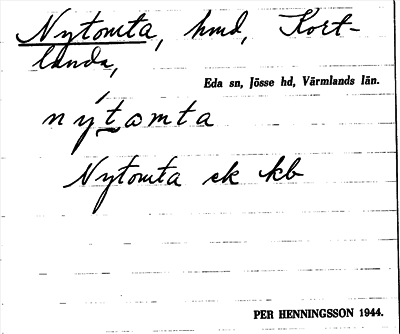 Nytomta, hmd, Kort-
landa,
Eda sn, Jösse hd, Värmlands län.
nýtωmta
Nytomta ek kb
PER HENNINGSSON 1944.